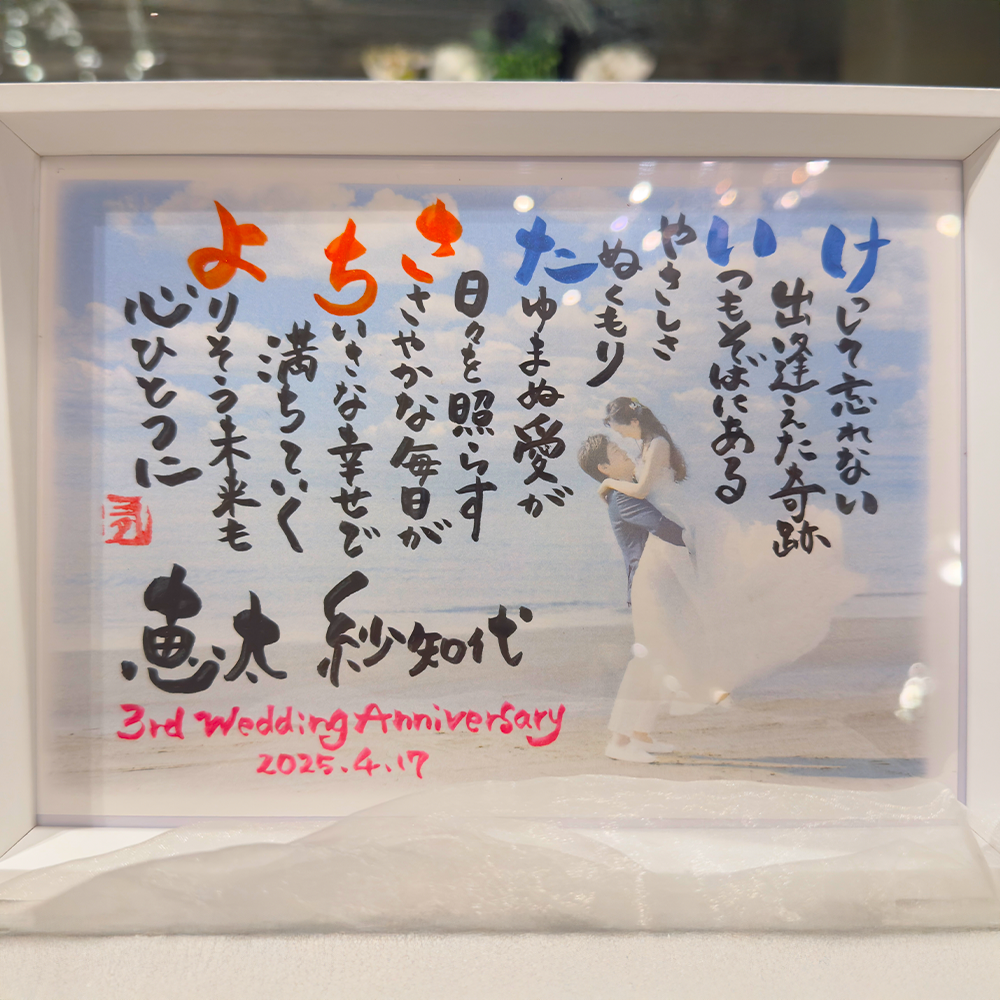 けして忘れない
出逢えた奇跡
いつもそばにある
やさしさ
ぬくもり
たゆまぬ愛が
日々を照らす
ささやかな毎日が
ちいさな幸せで
満ちていく
よりそう未来も
心ひとつに
恵太 紗知代
3rd Wedding Anniversary
2025.4.17